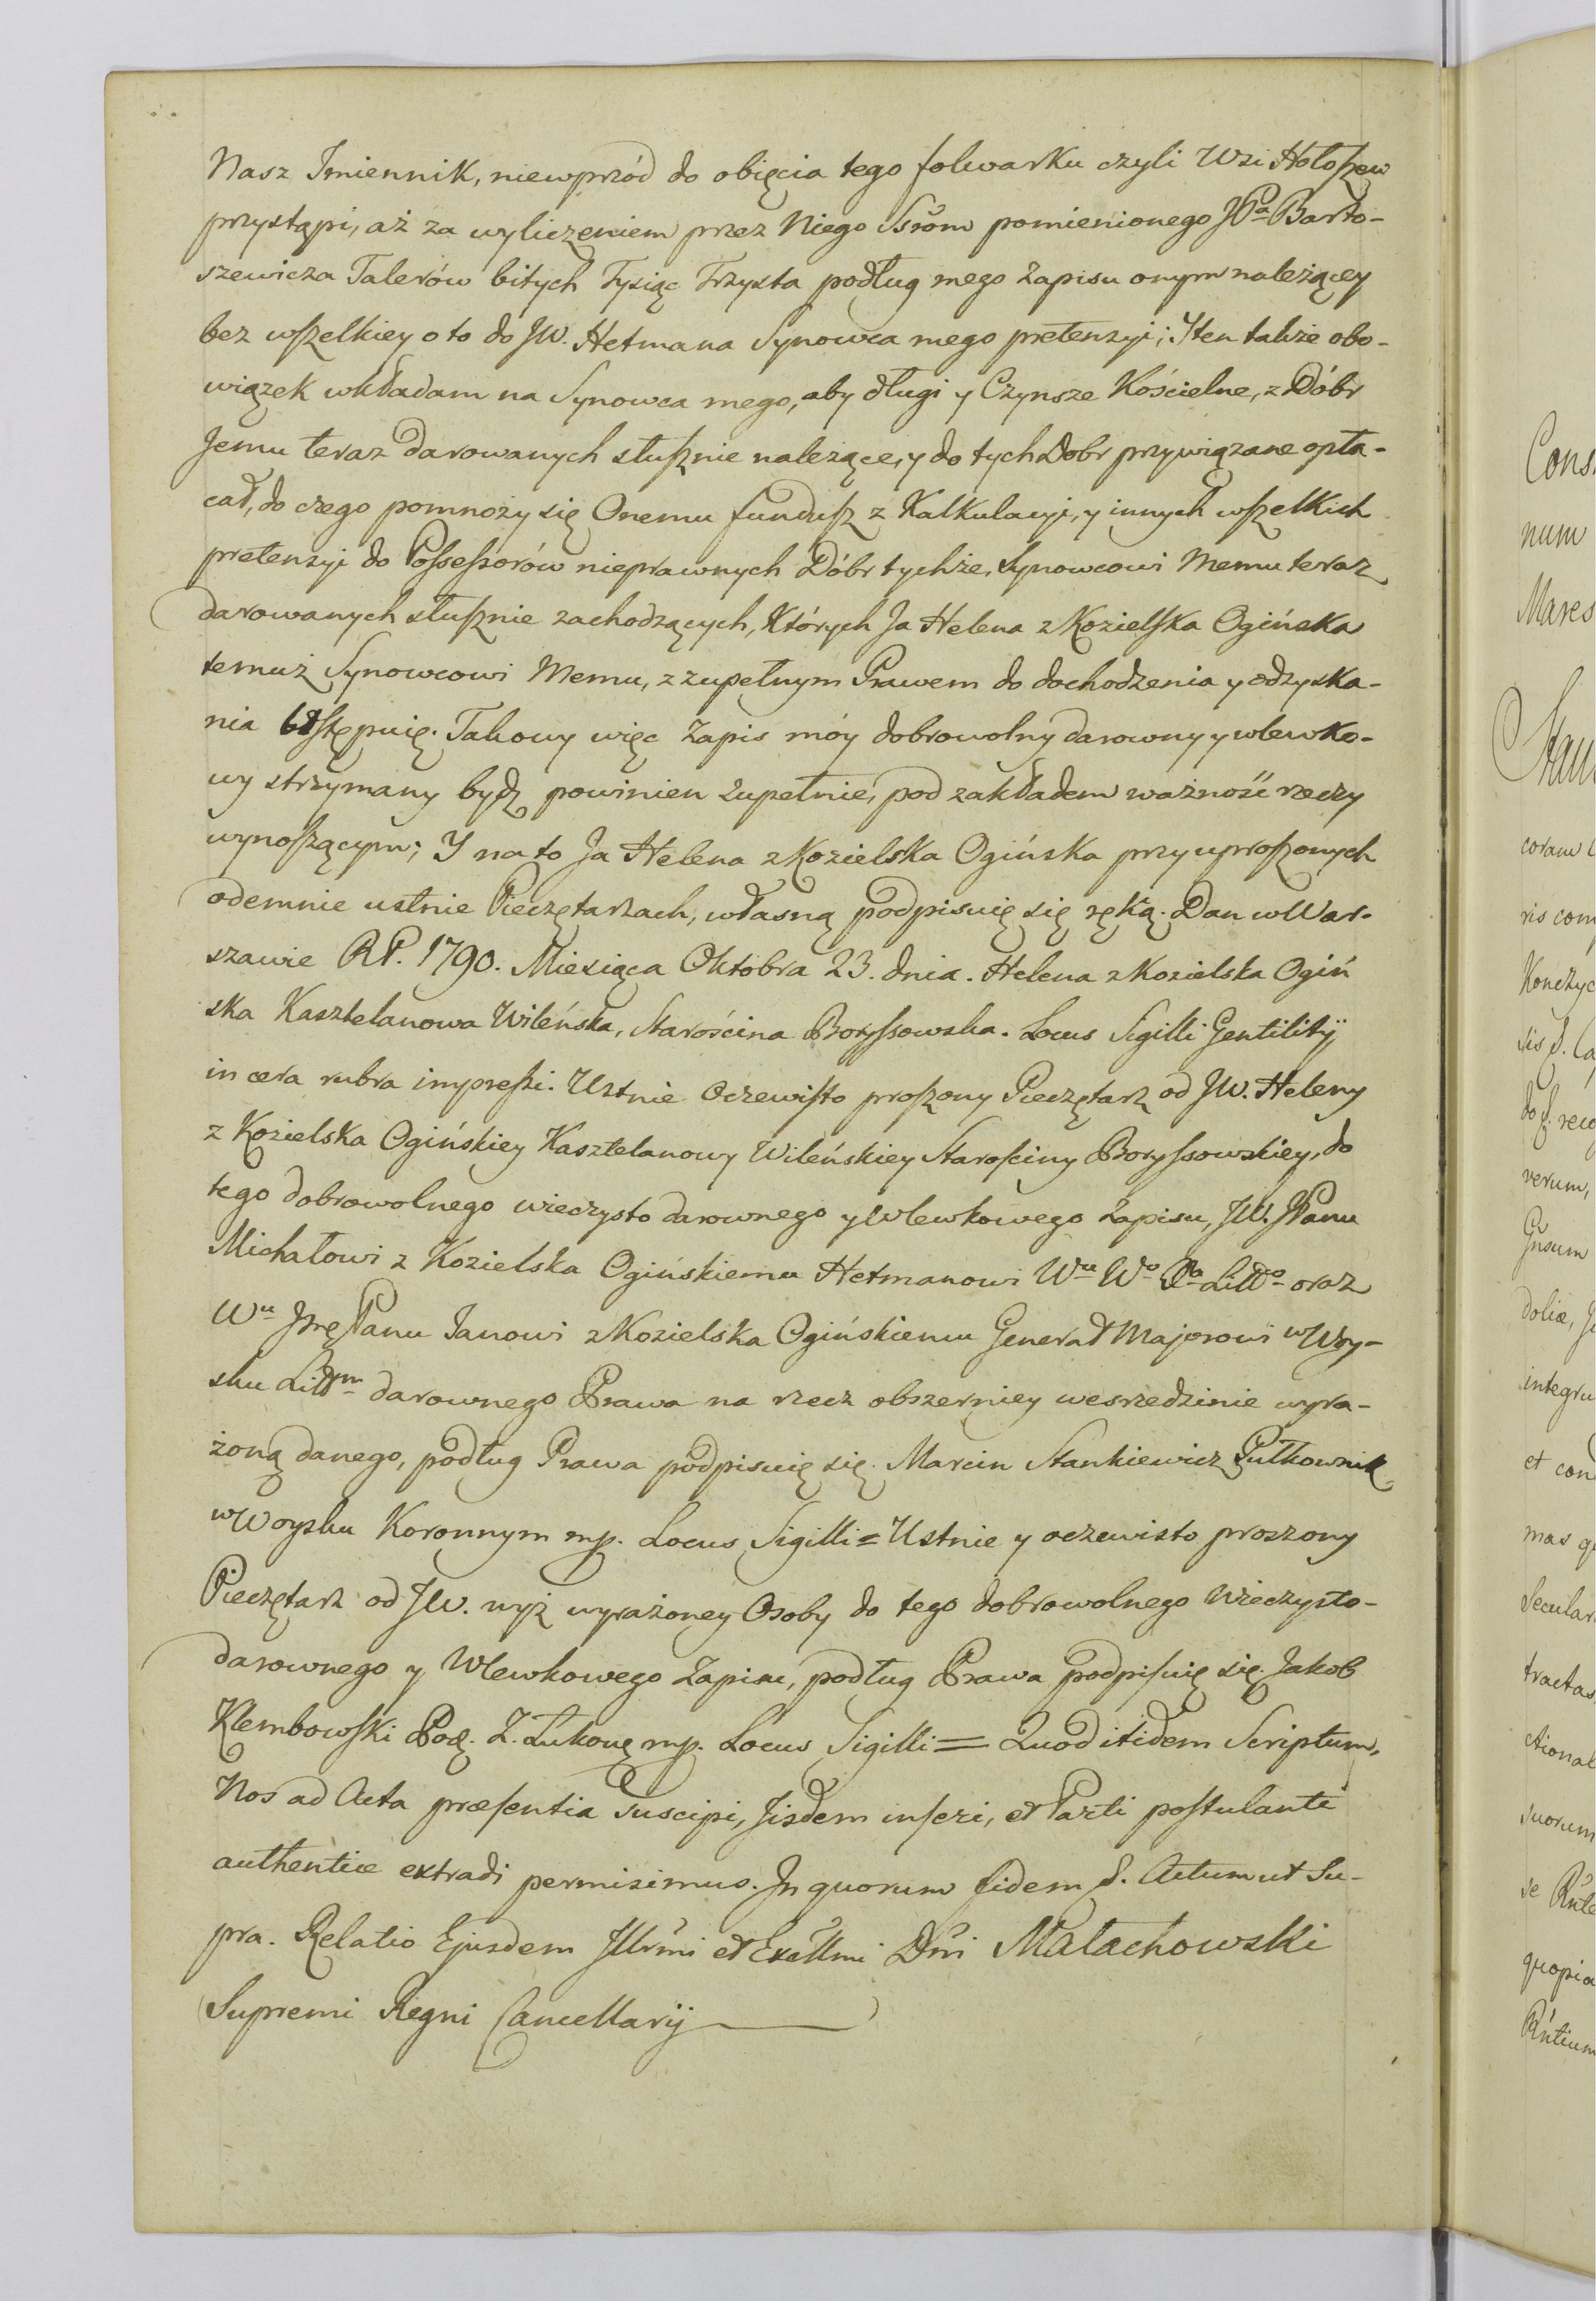 Nasz Imiennik, niewprzód do obięcia tego folwarku czyli Wsi Hołoszew
przystąpi, aż za wyliczeniem przez Niego Ssrom pomienionego JPa Barto-
szewicza Talerów bitych Tysiąc Trzysta podług mego Zapisu onym należącey
bez wszelkiey o to do JW. Hetmana Synowca mego pretensyi; Jten także obo-
wiązek wkładam na Synowca mego, aby długi y Czynsze Kościelne, z Dóbr
Jemu teraz darowanych słusznie należące, y do tych Dobr przywiązane opła-
cał, do czego pomnoży się Onemu fundusz z Kalkulacyi, y innych wszelkich
pretensyi do Possessorów nieprawnych Dóbr tychże, Synowcowi Memu teraz
darowanych słusznie zachodzących, Których Ja Helena z Kozielska Ogińska
temuż Synowcowi Memu, z zupełnym Prawem do dochodzenia y odzyska-
nia Ustępuię. Takowy więc Zapis móy dobrowolny darowny y wlewko-
wy strzymany bydź powinien zupełnie, pod zakładem ważność rzeczy
wynoszącym; Y na to Ja Helena z Kozielska Ogińska przy uproszonych
odemnie ustnie Pieczętarzach, własną podpisuię się ręką. Dan w War-
szawie RP. 1790. Miesiąca Oktobra 23. dnia. Helena z Kozielska Ogiń
ska Kasztelanowa Wileńska, Starościna Boryssowska. Locus Sigilli Gentilitÿ
in cera rubra impressi. Ustnie Oczewisto proszony Pieczętarz od JW. Heleny
z Kozielska Ogińskiey Kasztelanowy Wileńskiey Starościny Boryssowskiey, do
tego dobrowolnego wieczysto darownego y Wlewkowego Zapisu, JW. JPanu
Michałowi z Kozielska Ogińskiemu Hetmanowi Wu Wo Xa Littgo oraz
Wu Jmę Panu Janowi z Kozielska Ogińskiemu Generał Majorowi w Woy-
sku Littm darownego Prawa na rzecz obszerniey wesrzedzinie wyra-
żoną danego, podług Prawa podpisuię się. Marcin Stankiewicz Pułkownik
w Woysku Koronnym mp. Locus Sigilli = Ustnie y oczewisto proszony
Pieczętarz od JW. wyż wyrażoney Osoby do tego dobrowolnego Wieczysto-
darownego y Wlewkowego Zapisu, podług Prawa podpisuię się. Jakob
Klembowski Pod. Z. Łukow mp. Locus Sigilli = Quod itidem Scriptum,
Nos ad Acta præsentia suscipi, Jisdem inseri, et Parti postulanti
authentice extradi permisimus. Jn quorum fidem S. Actum ut Su-
pra. Relatio Ejusdem Jllrmi et Excellmi Dni Małachowski
Supremi Regni Cancellarÿ